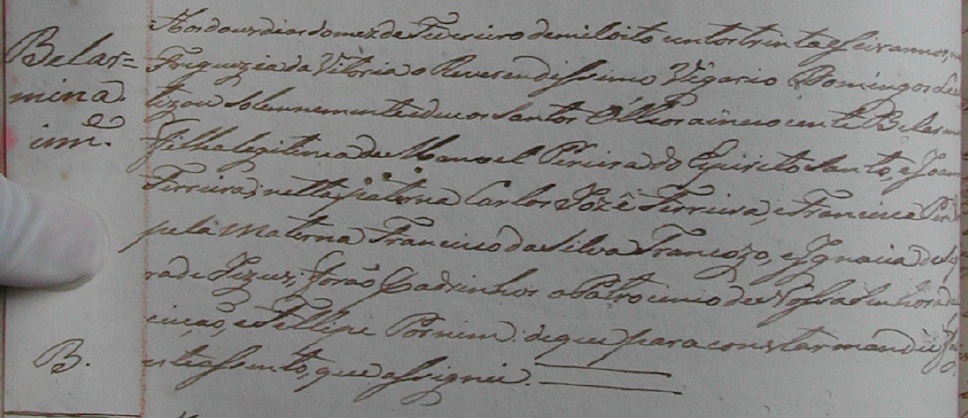 Belar=
mina.
im.e
B.
Aos dous dias do mez de Fevereiro de mil oito centos trinta e seis annos, n
Freguezia da Vitoria o Reverendissimo Vigario Domingos
tizou solemnemente e deu os Santos Olleos a inocente Belarm
Filha legitima de Manoel Pereira do Espirito Santo, e Joan
Ferreira; netta paterna Carlos Jozé Ferreira, e Francisca Per
pela Materna Francisco da Silva Francozo, e Ignacia de
ra de Jezus; forão Padrinhos o Patrocinio de Nossa Senhora da
ceição, e Fellipe de que para constar mandei fa
este assento, que assignei.